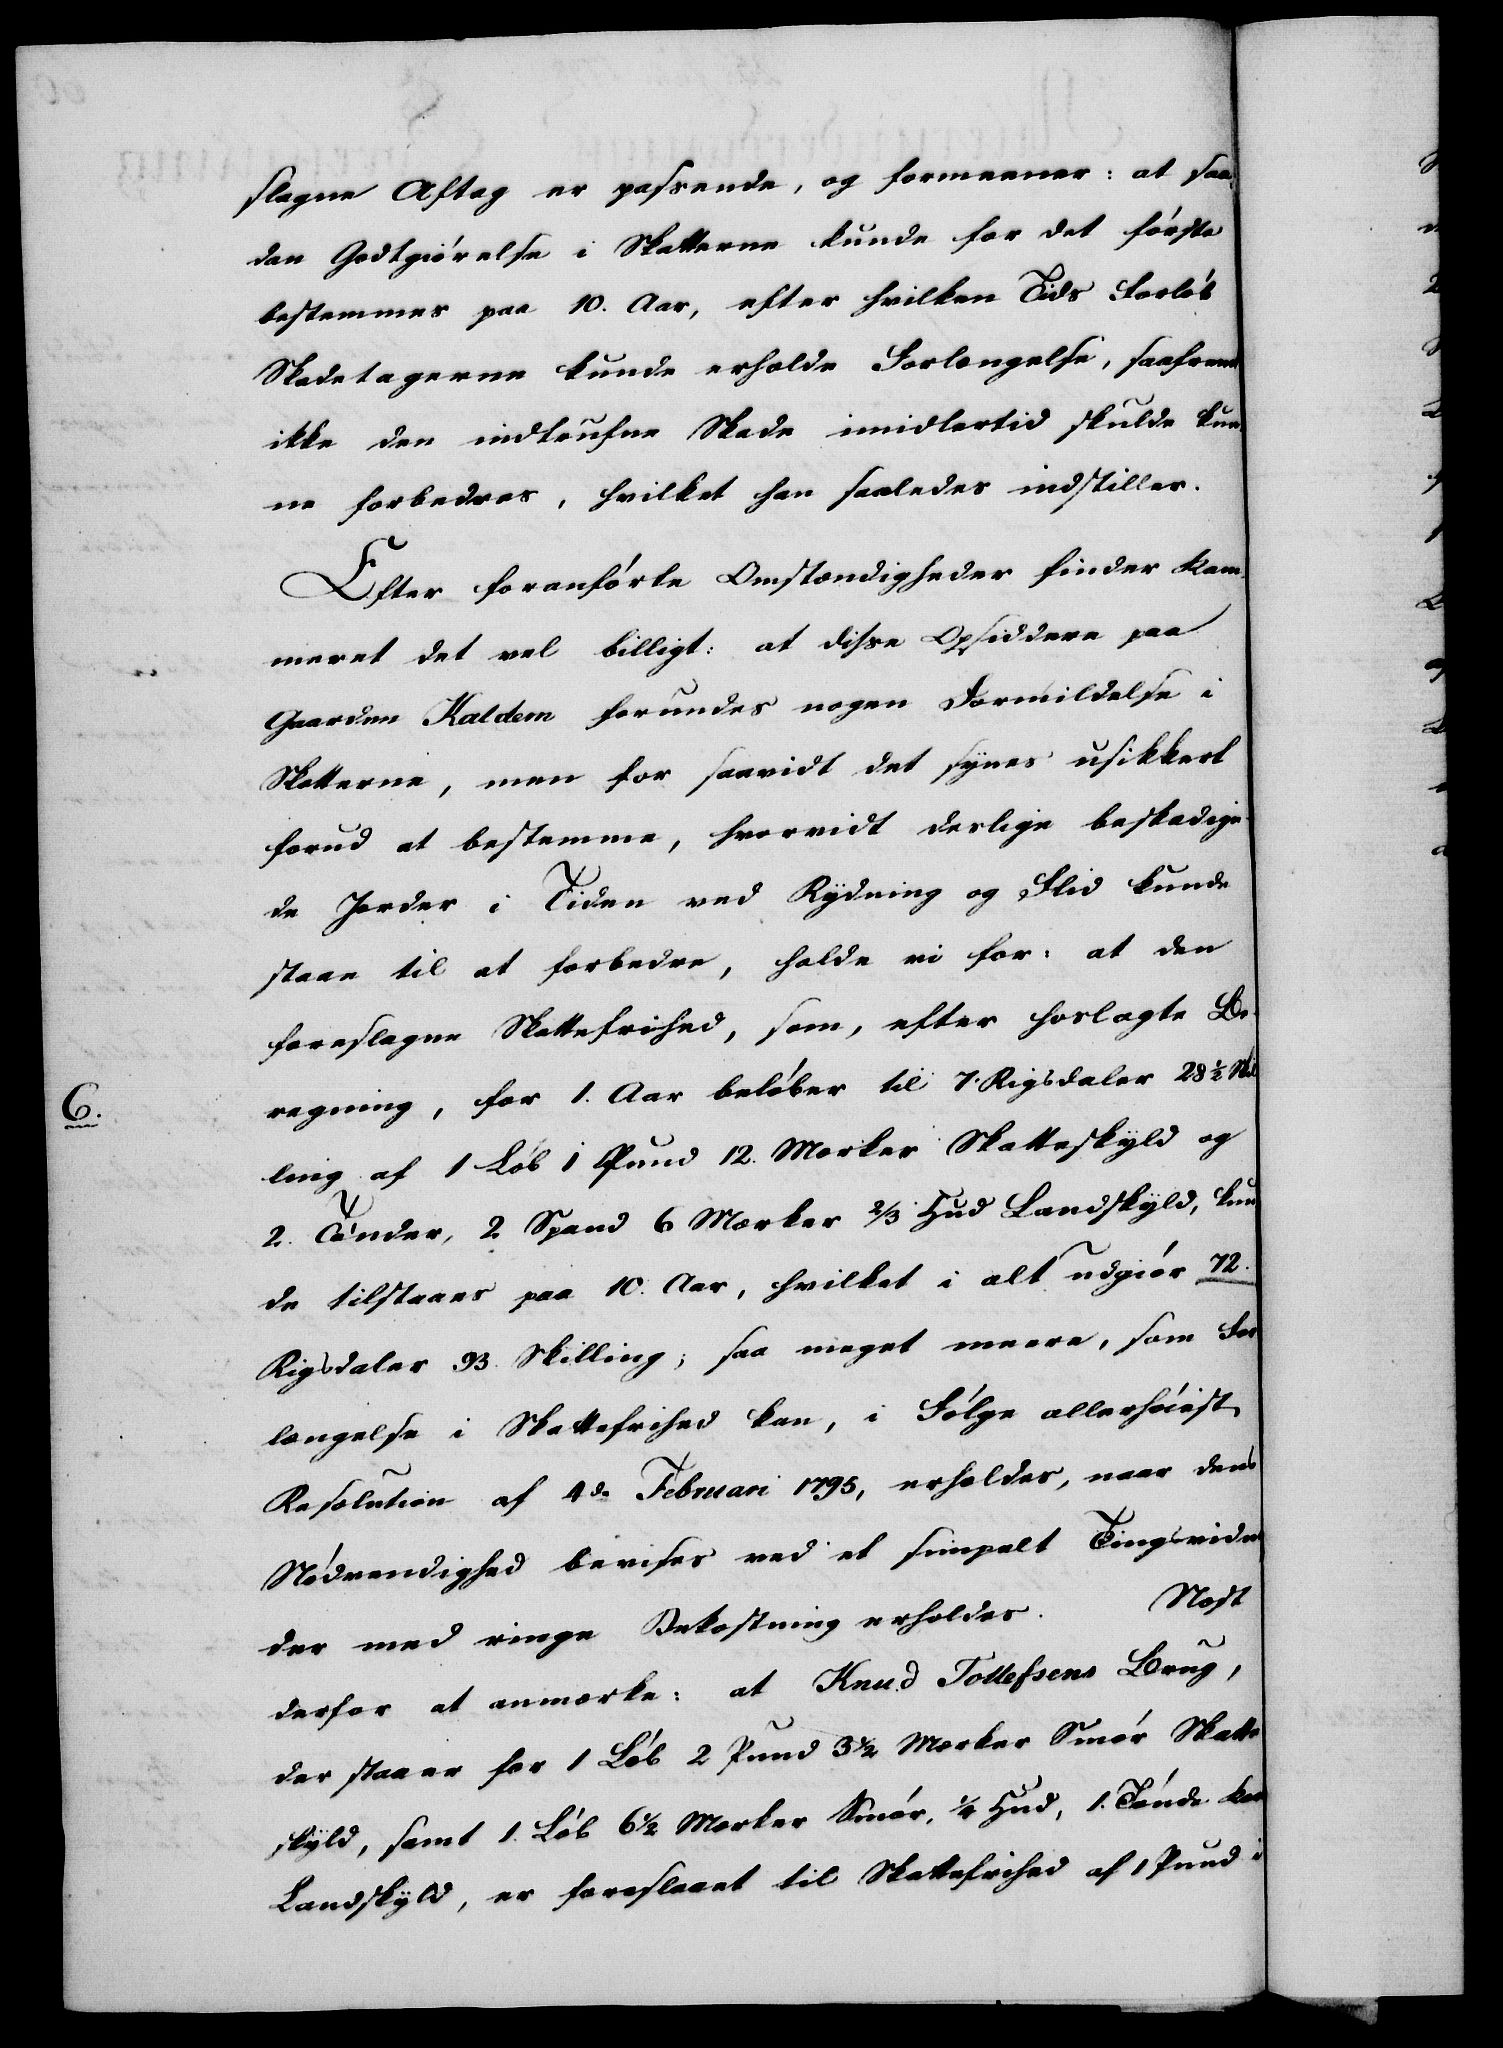 slagne Aftag er passende, og formeener: at saa-
dan Godtgiörelse i Skatterne kunde for det förste
bestemmes paa 10. Aar, efter hvilken Tids Forlöb
Skadetagerne kunde erholde Forlængelse, saafremt
ikke den indtrufne Skade imidlertid skulde kun-
ne forbedres, hvilket han saaledes indstiller.
Efter foranförte Omstændigheder finder Kam-
meret det vel billigt: at disse Opsiddere paa
Gaarden Kaldem forundes nogen Formildelse i
Skatterne, men for saavidt det synes usikkert
forud at bestemme, hvorvidt deslige beskadige-
de Jorder i Tiden ved Rydning og Flid kunde
staae til at forbedre, holde vi for: at den
foreslagne Skattefrihed, som, efter hoslagte Be-
6.
regning, for 1. Aar belöber til 7. Rigsdaler 28 1/2 Skil
ling af 1 Löb 1 Pund 12. Marker Skatteskyld og
2. Tönder, 2 Spand 6 Marker 2/3 Hud Landskyld, kun
de tilstaaes paa 10. Aar, hvilket i alt udgiör 72.
Rigsdaler 93. Skilling; saa meget meere, som For
længelse i Skattefrihed kan, i Fölge allerhöiest
Resolution af 4de Februari 1795, erholdes, naar dens
Nödvendighed bevises ved et simpelt Tingsvidne
der med ringe Bekostning erholdes. Nost
derfor at anmærke: at Knud Tollefsens Brug,
der staaer for 1 Löb 2 Pund 3 1/2 Marker Smör Skatte
skyld, samt 1. Löb 6 1/2 Marker Smör, 1/4 Hud, 1. Tönde Korn
Landskyld, er foreslaaet til Skattefrihed af 1 Pund i